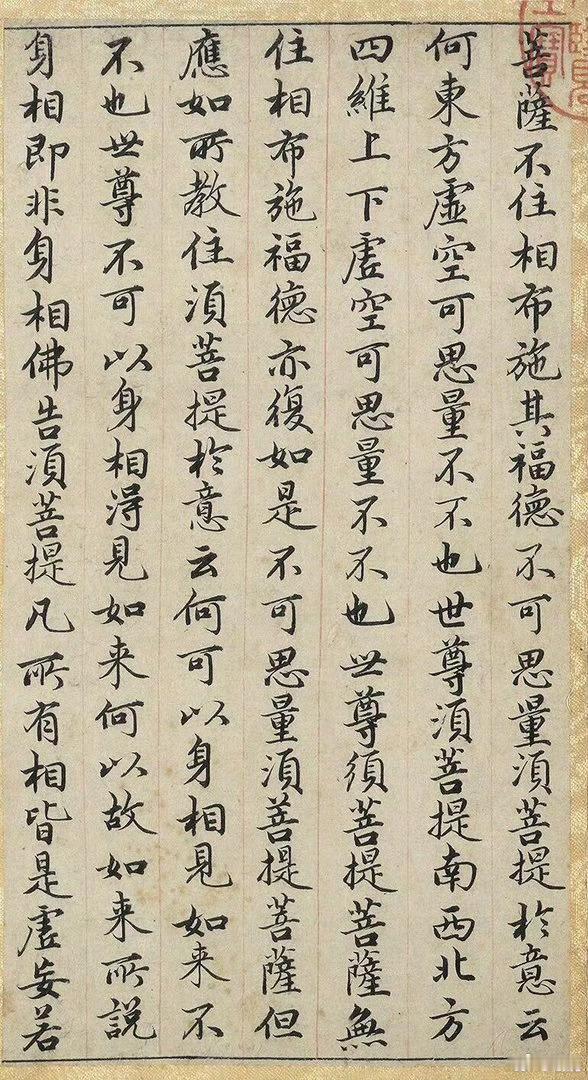 菩薩不住相布施其福德不可思量須菩提於意云
何東方虛空可思量不不也世尊須菩提南西北方
四維上下虛空可思量不不也世尊須菩提菩薩無
住相布施福德亦復如是不可思量須菩提菩薩但
應如所教住須菩提於意云何可以身相見如来不
不也世尊不可以身相得見如来何以故如来所說
身相即非身相佛告須菩提凡所有相皆是虛妄若